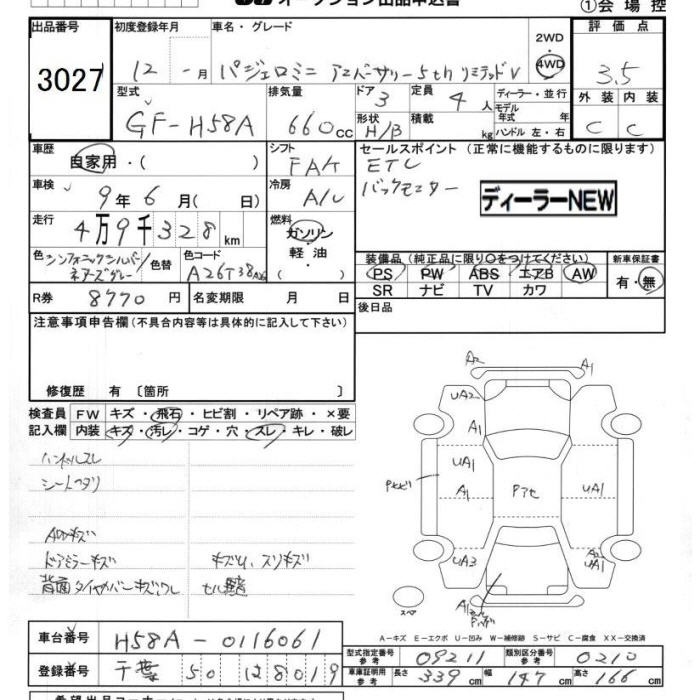 オークション出品申込書
①会場控
出品番号
3027
初度登録年月
12 - 月
車名・グレード
パジェロミニ アニバーサリー5th リミテッドV
2WD
4WD
評価点
3.5
外装 内装
C C
型式
GF-H58A
排気量
660cc
ドア 3
形状 H/B
定員 4人
積載 kg
ディーラー・並行
モデル年式 年
ハンドル 左・右
車歴
自家用・( )
シフト
FAT
セールスポイント (正常に機能するものに限ります)
ETC
バックモニター
ディーラーNEW
車検
9年6月(日)
冷房
A/C
走行
4万9千328km
燃料
ガソリン
軽油
( )
色 シンフォニックシルバー/
色替
色コード
A26T38
装備品 (純正品に限り○をつけてください)
PS PW ABS エアB AW
SR ナビ TV カワ
新車保証書
有・無
R券 8770円
名変期限 月 日
後日品
注意事項申告欄(不具合内容等は具体的に記入して下さい)
修復歴 有 〔箇所 〕
検査員記入欄
FW キズ・飛石・ヒビ割・リペア跡・×要
内装 キズ・汚レ・コゲ・穴・スレ・キレ・破レ
ハンドルスレ
シートヘタリ
AWキズ
ドアミラーキズ
背面タイヤカバーキズワレ
A2 A1
UA2
A1
UA1
A1
UA1
Pアセ
UA3
A2
UA1
A1
スペア
A-キズ E-エクボ U-凹み W-補修跡 S-サビ C-腐食 XX-交換済
車台番号
H58A-0116061
登録番号
千葉 50 ほ 8019
型式指定番号 参考
09211
類別区分番号 参考
0210
車庫証明用 参考
長さ 339cm 幅 147cm 高さ 166cm